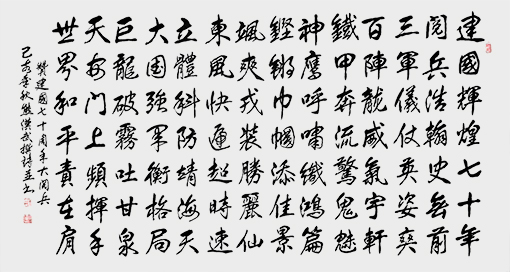 建國輝煌七十年
閱兵浩瀚史無前
三軍儀仗英姿奕
百陣龍威氣宇軒
鐵甲奔流驚鬼魅
神鷹呼嘯織鴻篇
鏗鏘巾幗添佳景
颯爽戎裝勝麗仙
東風快遞超時速
立體科防靖海天
大国強軍衡格局
巨龍破霧吐甘泉
天安门上頻揮手
世界和平責在肩
贊建國七十周年大閱兵
己亥季秋熊漢武撰詩並書